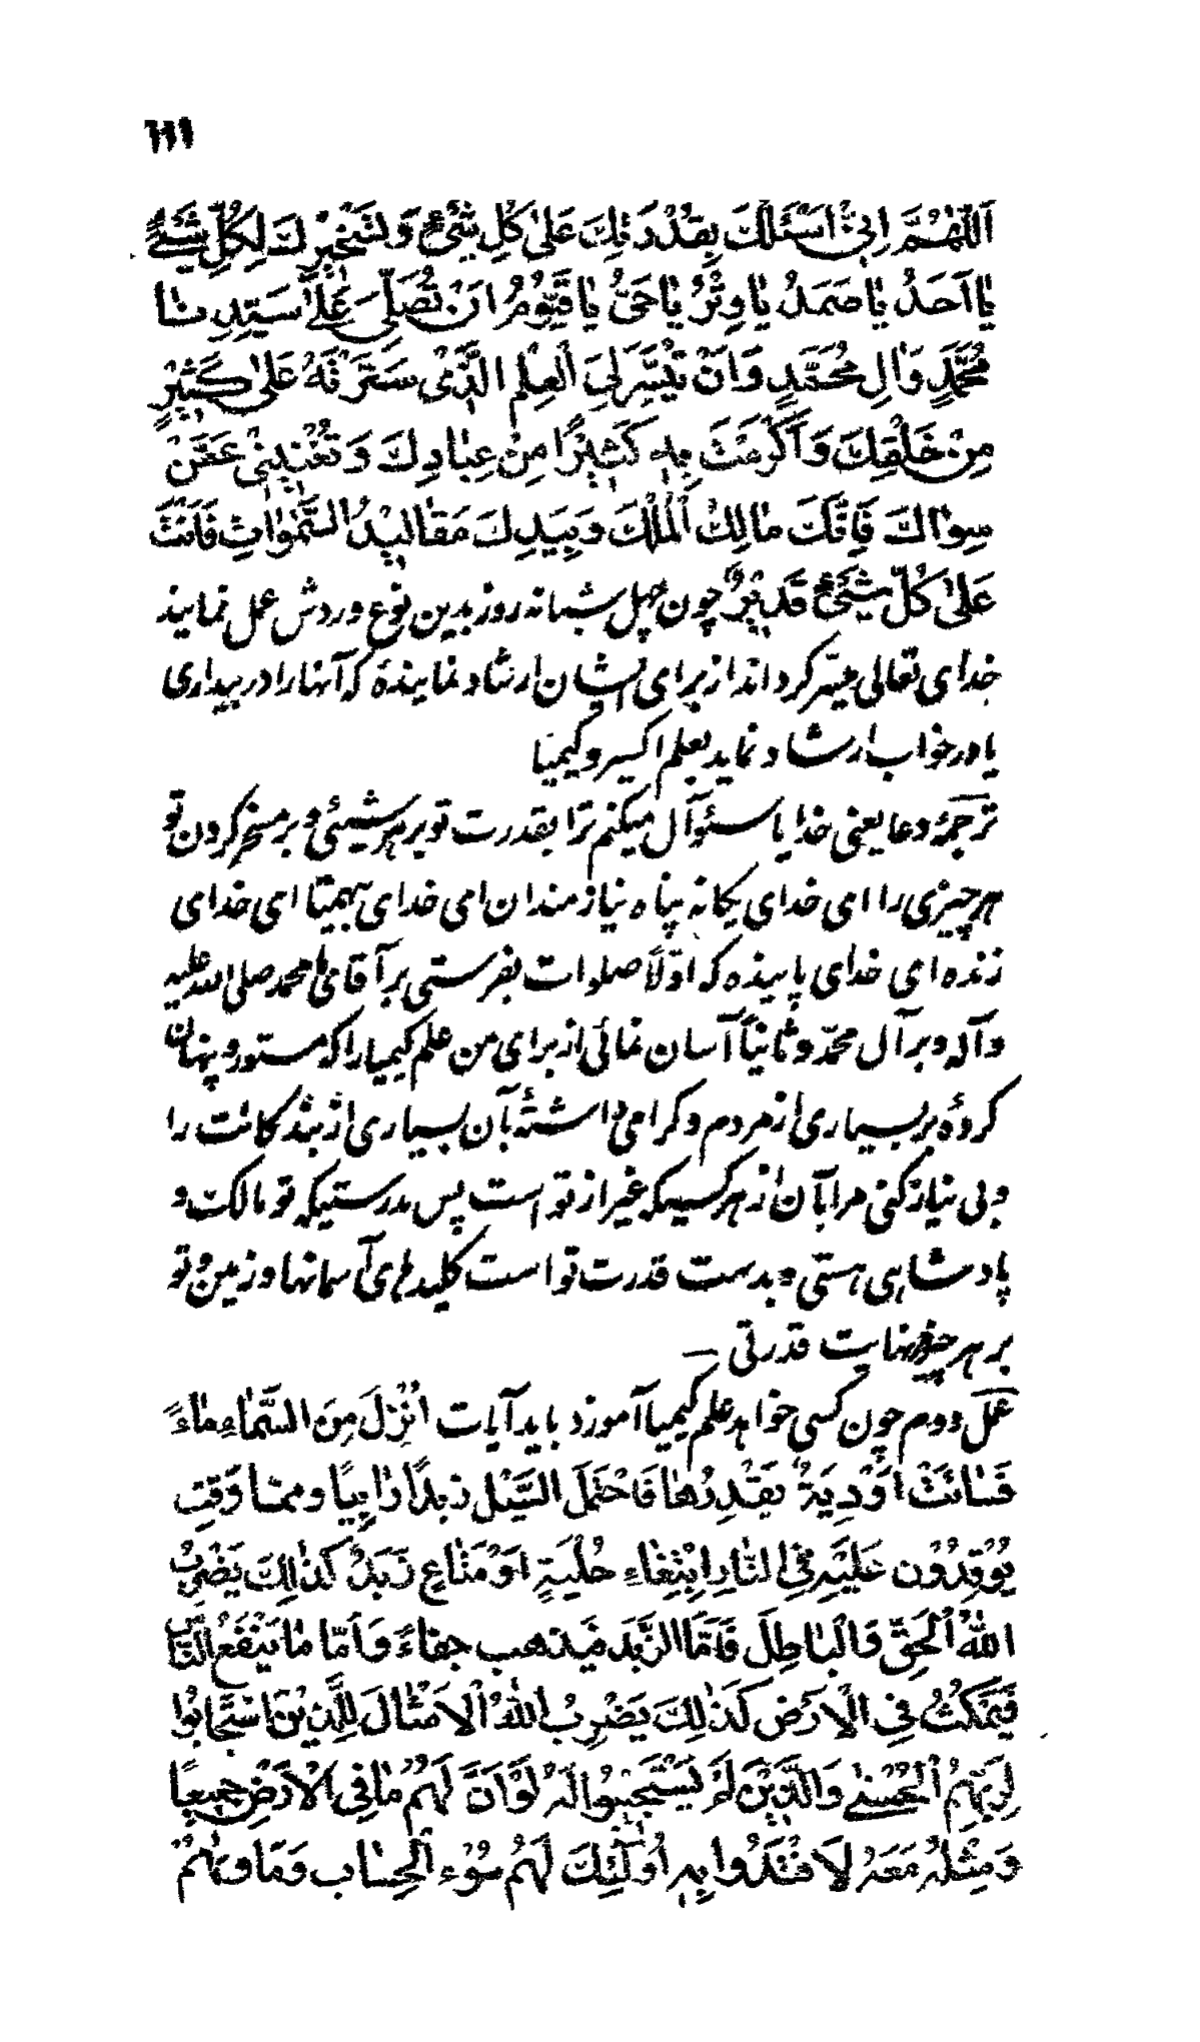 ۱۱۱
اَللّٰهُمَّ اِنّىٖ اَسْئَلُكَ بِقُدْرَتِكَ عَلىٰ كُلِّ شَيْئٍ وَتَسْخيٖرِكَ لِكُلِّ شَيْئٍ
يٰا اَحَدُ يٰا صَمَدُ يٰا وِتْرُ يٰا حَىُّ يٰا قَيُّوْمُ اَنْ تُصَلِّىَ عَلىٰ سَيِّدِنٰا
مُحَمَّدٍ وَاٰلِ مُحَمَّدٍ وَاَنْ تُيَسِّرَ لِىَ الْعِلْمِ الَّذىٖ سَتَرْتَهُ عَلىٰ كَثيٖرٍ
مِنْ خَلْقِكَ وَاَكْرَمْتَ بِهٖ كَثيٖرًا مِنْ عِبٰادِكَ وَتُغْنيٖنىٖ عَمَّنْ
سِوٰاكَ فَاِنَّكَ مٰالِكُ الْمُلْكَ وَبِيَدِكَ مَقٰاليٖدُ السَّمٰوٰاتِ فَاَنْتَ
عَلىٰ كُلِّ شَيْئٍ قَديٖرٌ چون چهل شبانه روز بدین نوع وردش عمل نمایند
خدای تعالی میسّر گرداند از برای ایشان ارشاد نمایندهٔ که آنها را در بیداری
یا در خواب ارشاد نماید بعلم اکسیر و کیمیا
ترجمهٔ دعا یعنی خدایا سئوآل میکنم ترا بقدرت تو بر هر شیئی و بر مسخر کردن تو
هر چیزی را ای خدای یگانه پناه نیازمندان ای خدای بیهمتا ای خدای
زنده ای خدای پاینده که اوّلاً صلوات بفرستی بر آقای ما محمد صلی الله علیه
وآله و بر آل محمّد و ثانیاً آسان نمائی از برای من علم کیمیا را که مستور و پنهان
کردهٔ بر بسیاری از مردم و گرامی داشتهٔ بآن بسیاری از بندگانت را
و بی نیاز کنی مرا بآن از هر کسیکه غیر از تو است پس بدرستیکه تو مالک و
پادشاهی هستی و بدست قدرت تو است کلیدهای آسمانها و زمین و تو
بر هر چیز بنهایت قدرتی ــ
عمل دوم چون کسی خواهد علم کیمیا آموزد باید آیات اَنْزَلَ مِنَ السَّمٰاءِ مٰاءً
فَسٰالَتْ اَوْدِيَةٌ بِقَدَرِهٰا فَاحْتَمَلَ السَّيْلُ زبدًا رٰابِيًا وممّا وَقِتِ
يُوْقِدُوْن عَلَيْهِ فِى النّٰارِ ابْتِغٰاءِ حُلْيَةٍ اَوْ مَتٰاعٍ زَبَدٌ كَذٰلِكَ يَضْرِبُ
اللّٰهُ الْحَقَّ وَالْبٰاطِلَ فَاَمَّا الزَّبَدَ فَيَذهب جفاءً وَاَمّا مٰا يَنْفَعُ النّٰاسَ
فَيَمْكُثُ فِى الْاَرْضِ كَذٰلِكَ يَضْرِبُ اللّٰهُ الْاَمْثٰالَ لِلَّذيٖنَ اسْتَجٰابُوا
لِرَبِّهِمُ الْحُسْنىٰ وَالَّذيٖنَ لَمْ يَسْتَجيٖبُوا لَهُ لَوْ اَنَّ لَهُمْ مٰا فِى الْاَرْضِ جَميٖعًا
وَمِثْلُهُ مَعَهُ لَافْتَدَوْا بِهٖ اُولٰئِكَ لَهُمْ سُوْء الْحِسٰاب وَمَاْوٰيهُمْ